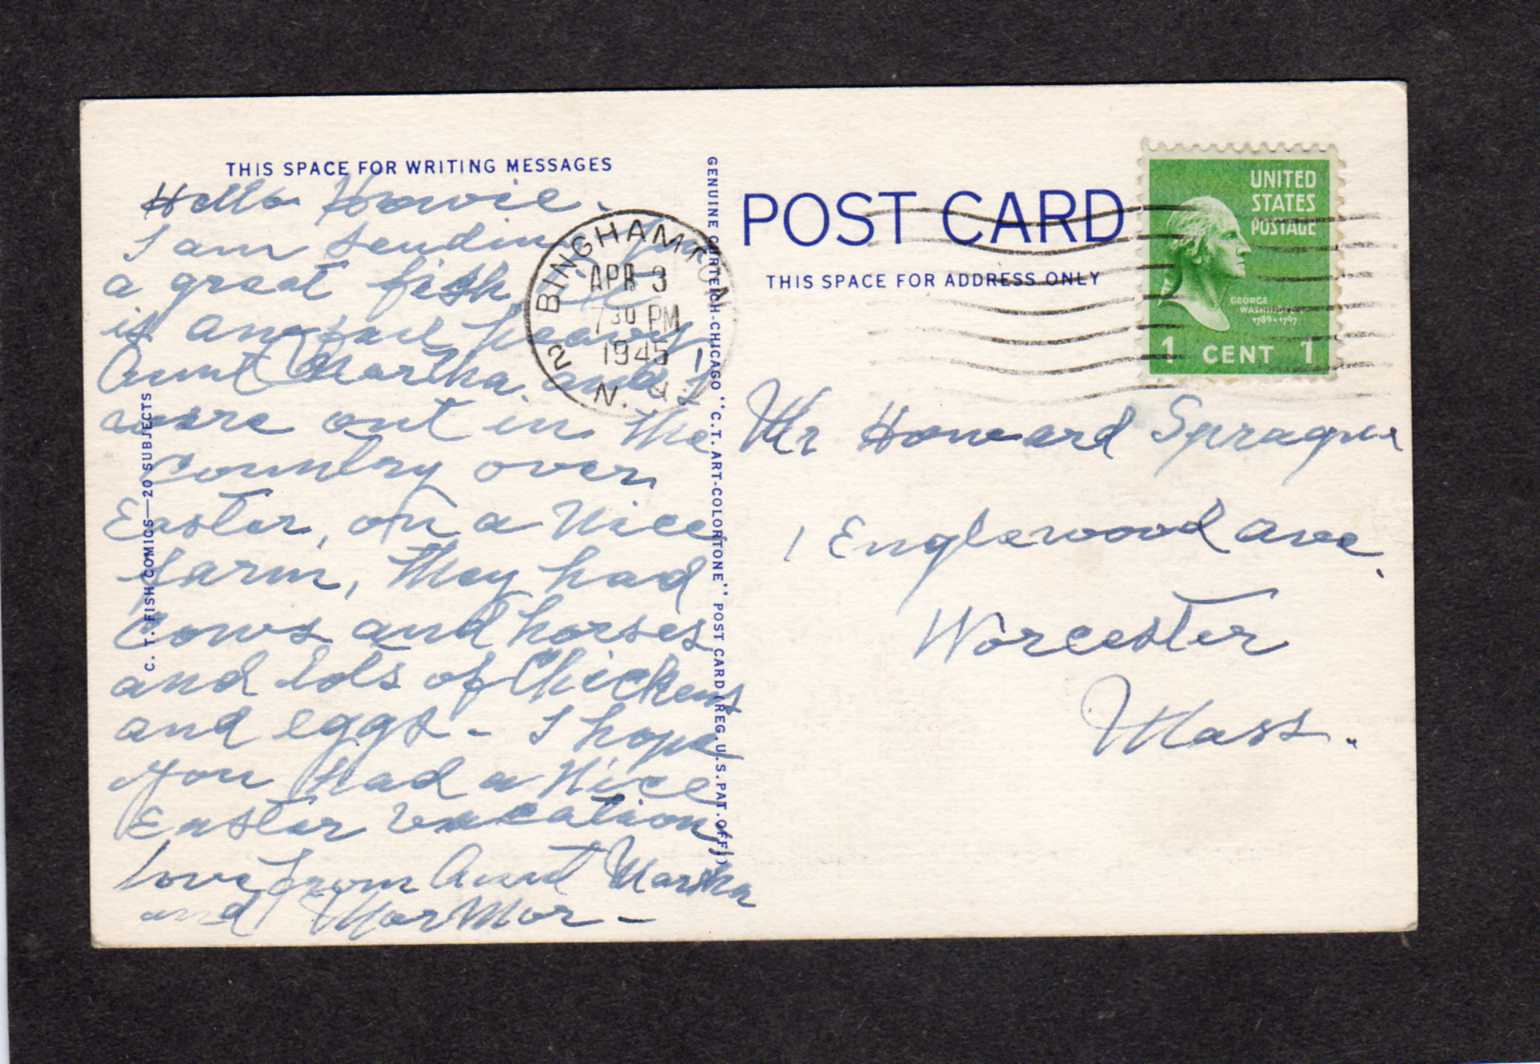 THIS SPACE FOR WRITING MESSAGES
Hello Howie.
I am sending you
a great fish, It
is an
Aunt Martha and I
were out in the
country over
Easter, on a Nice
farm, they had
cows and horses
and lots of Chickens
and eggs - I hope
you had a Nice
Easter vacation,
Love from Aunt Martha
and MorMor -
C. T. FISH COMICS—20 SUBJECTS
BINGHAMTON
APR 3
7 30 PM
1945
N. Y.
2
GENUINE CURTEICH-CHICAGO "C.T. ART-COLORTONE" POST CARD (REG. U.S. PAT. OFF.)
POST CARD
THIS SPACE FOR ADDRESS ONLY
UNITED
STATES
POSTAGE
GEORGE
WASHINGTON
1789-1797
1 CENT 1
Mr Howard Sprague
1 Englewood Ave.
Worcester
Mass.